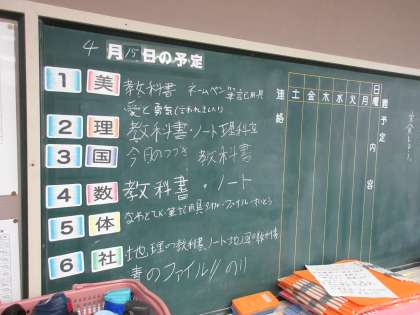 4月15日の予定
1 美 教科書 ネームペン 筆記用具
愛と勇気(言われました)
2 理 教科書・ノート 理科室
3 国 今日のつづき 教科書
4 数 教科書・ノート
5 体 なわとび・筆記用具
6 社 地理の教科書、ノート 地図の教科書
青のファイル // のり
連絡
土 金 木 水 火 月 日曜
週予定
内容